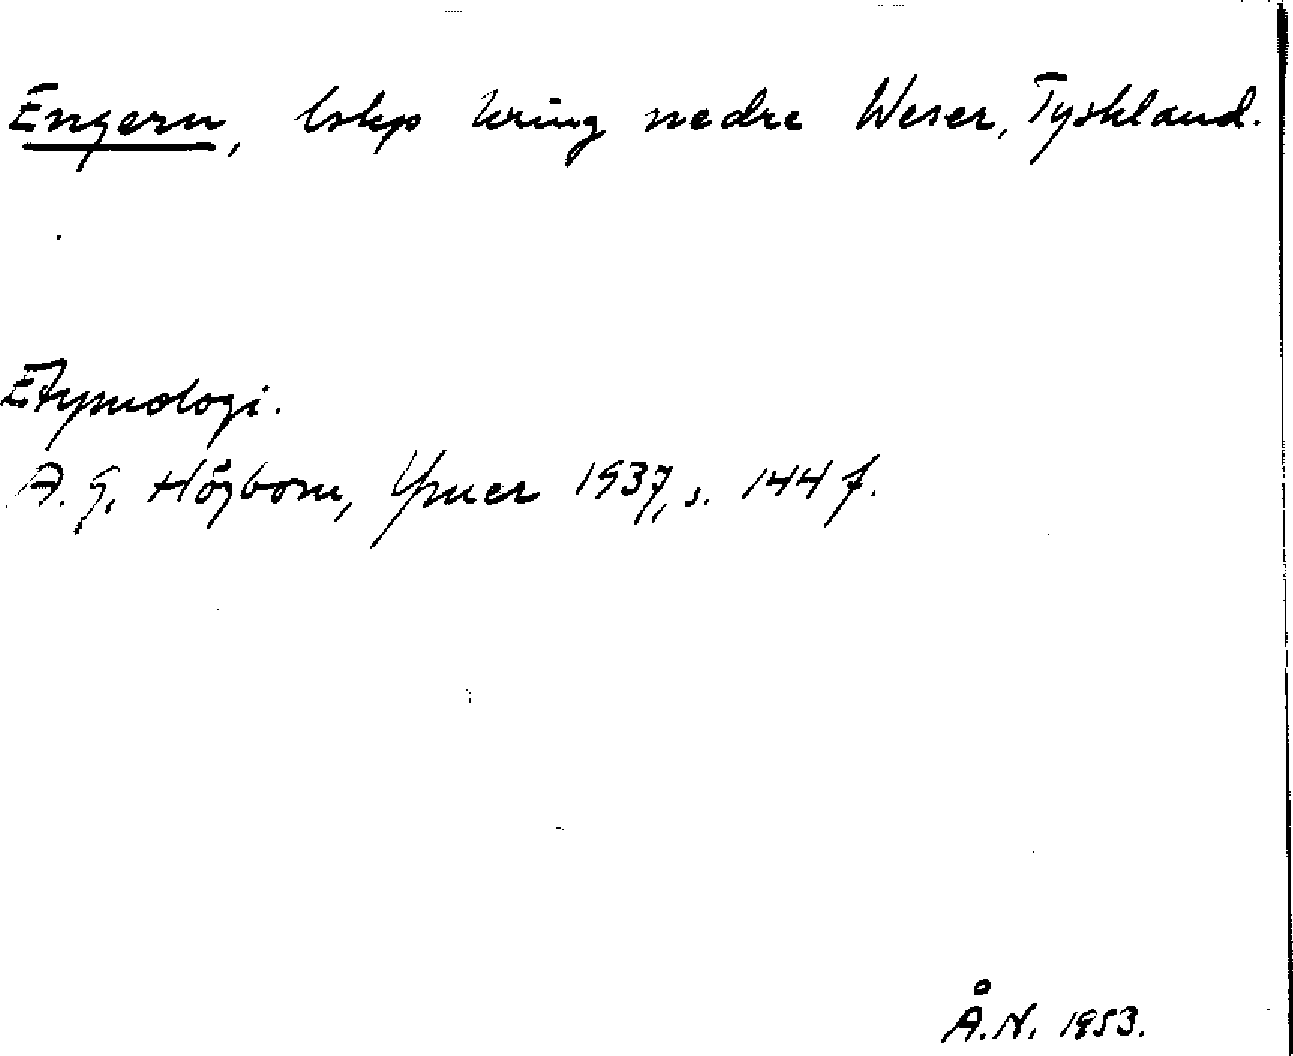 Engern, lskp kring nedre Weser, Tyskland.
Etymologi.
A. G. Högbom, Ymer 1937, s. 144 f.
Å.N. 1953.